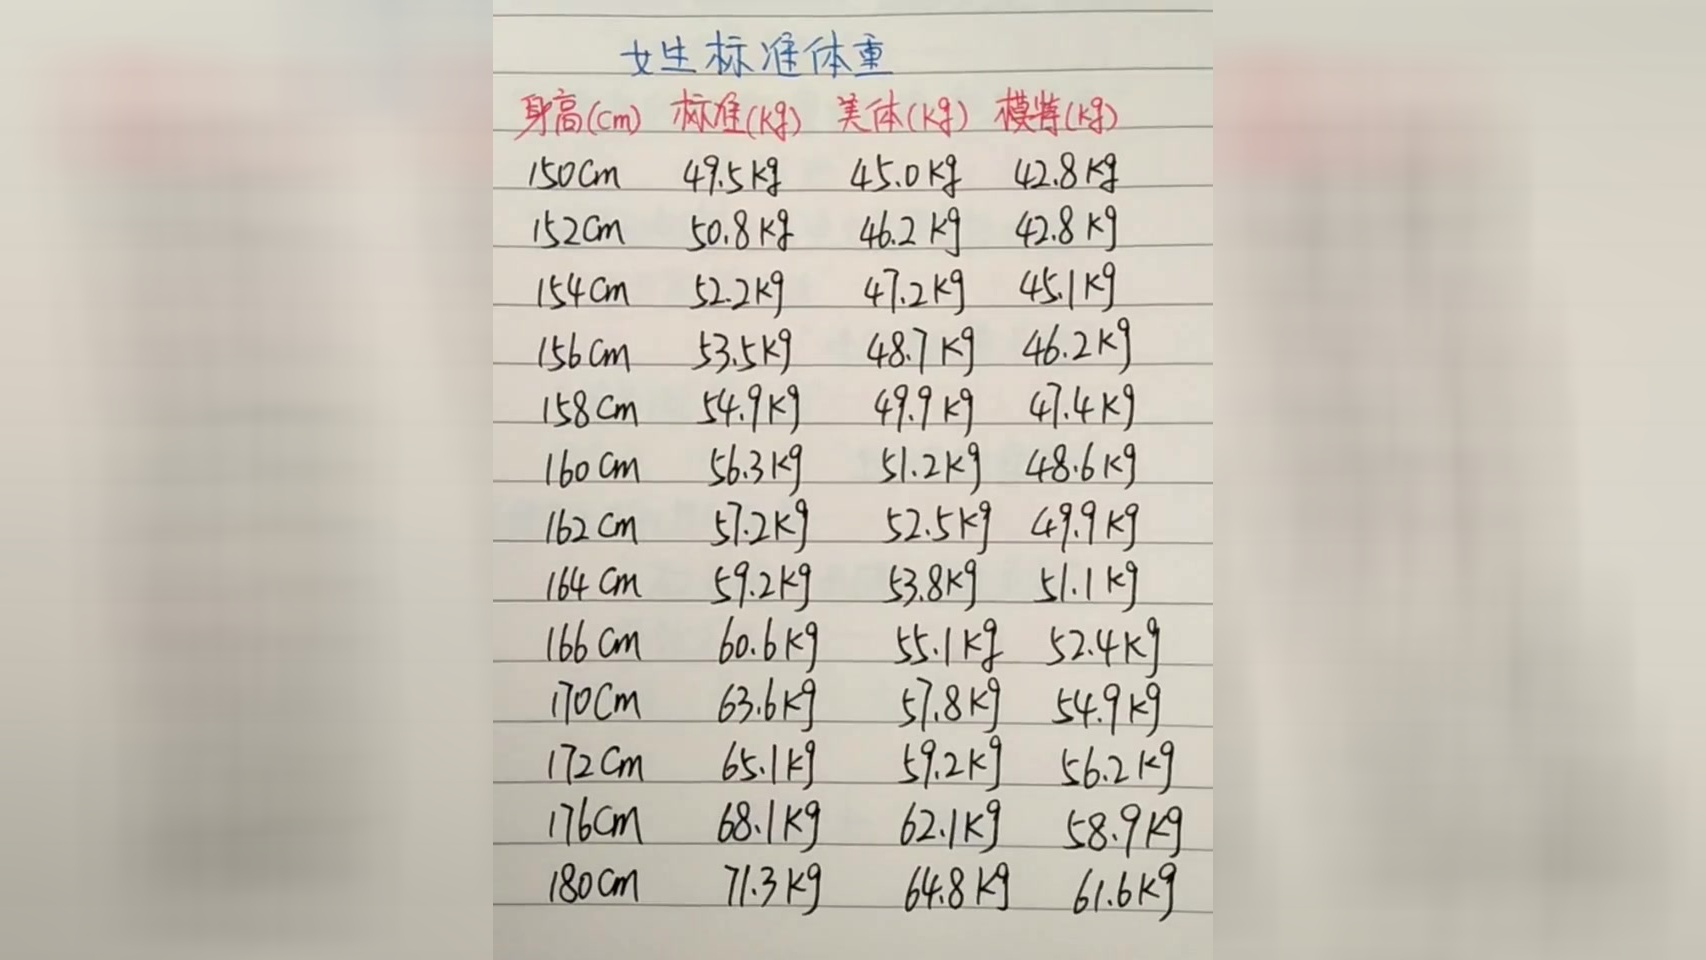 女生标准体重
身高(cm) 标准(kg) 美体(kg) 模特(kg)
150cm 49.5kg 45.0kg 42.8kg
152cm 50.8kg 46.2kg 42.8kg
154cm 52.2kg 47.2kg 45.1kg
156cm 53.5kg 48.7kg 46.2kg
158cm 54.9kg 49.9kg 47.4kg
160cm 56.3kg 51.2kg 48.6kg
162cm 57.2kg 52.5kg 49.9kg
164cm 59.2kg 53.8kg 51.1kg
166cm 60.6kg 55.1kg 52.4kg
170cm 63.6kg 57.8kg 54.9kg
172cm 65.1kg 59.2kg 56.2kg
176cm 68.1kg 62.1kg 58.9kg
180cm 71.3kg 64.8kg 61.6kg